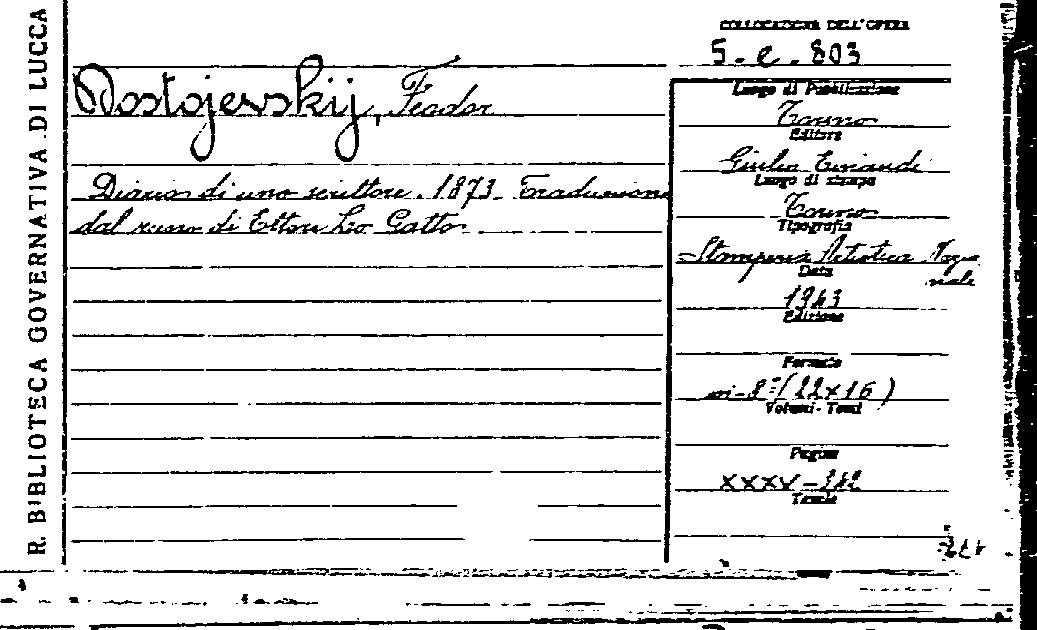 R. BIBLIOTECA GOVERNATIVA DI LUCCA
COLLOCAZIONE DELL'OPERA
5. e. 803
Dostojevskij, Feodor
Diario di uno scrittore. 1873. Traduzione
dal russo di Ettore Lo Gatto.
Luogo di Pubblicazione
Torino
Editore
Giulio Einaudi
Luogo di stampa
Torino
Tipografia
Stamperia Artistica Nazio
nale
Data
1943
Edizione
Formato
in-8° (22x16)
Volumi - Tomi
Pagine
XXXV-
Tavole